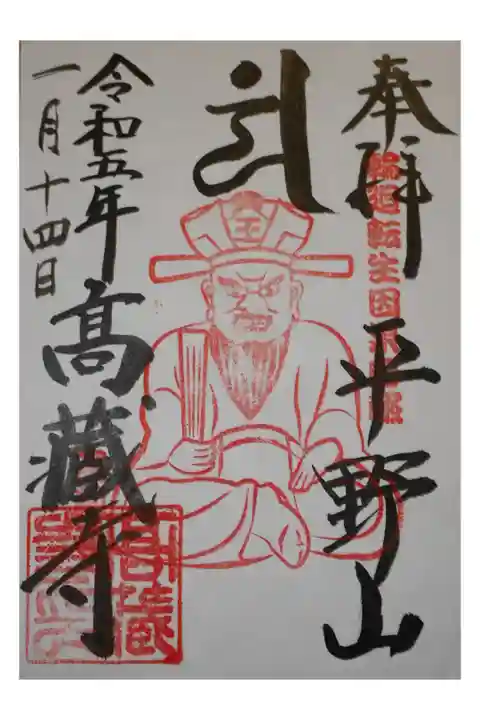 奉拝
輪廻転生因果応報
平野山
王
高蔵寺
令和五年
一月十四日